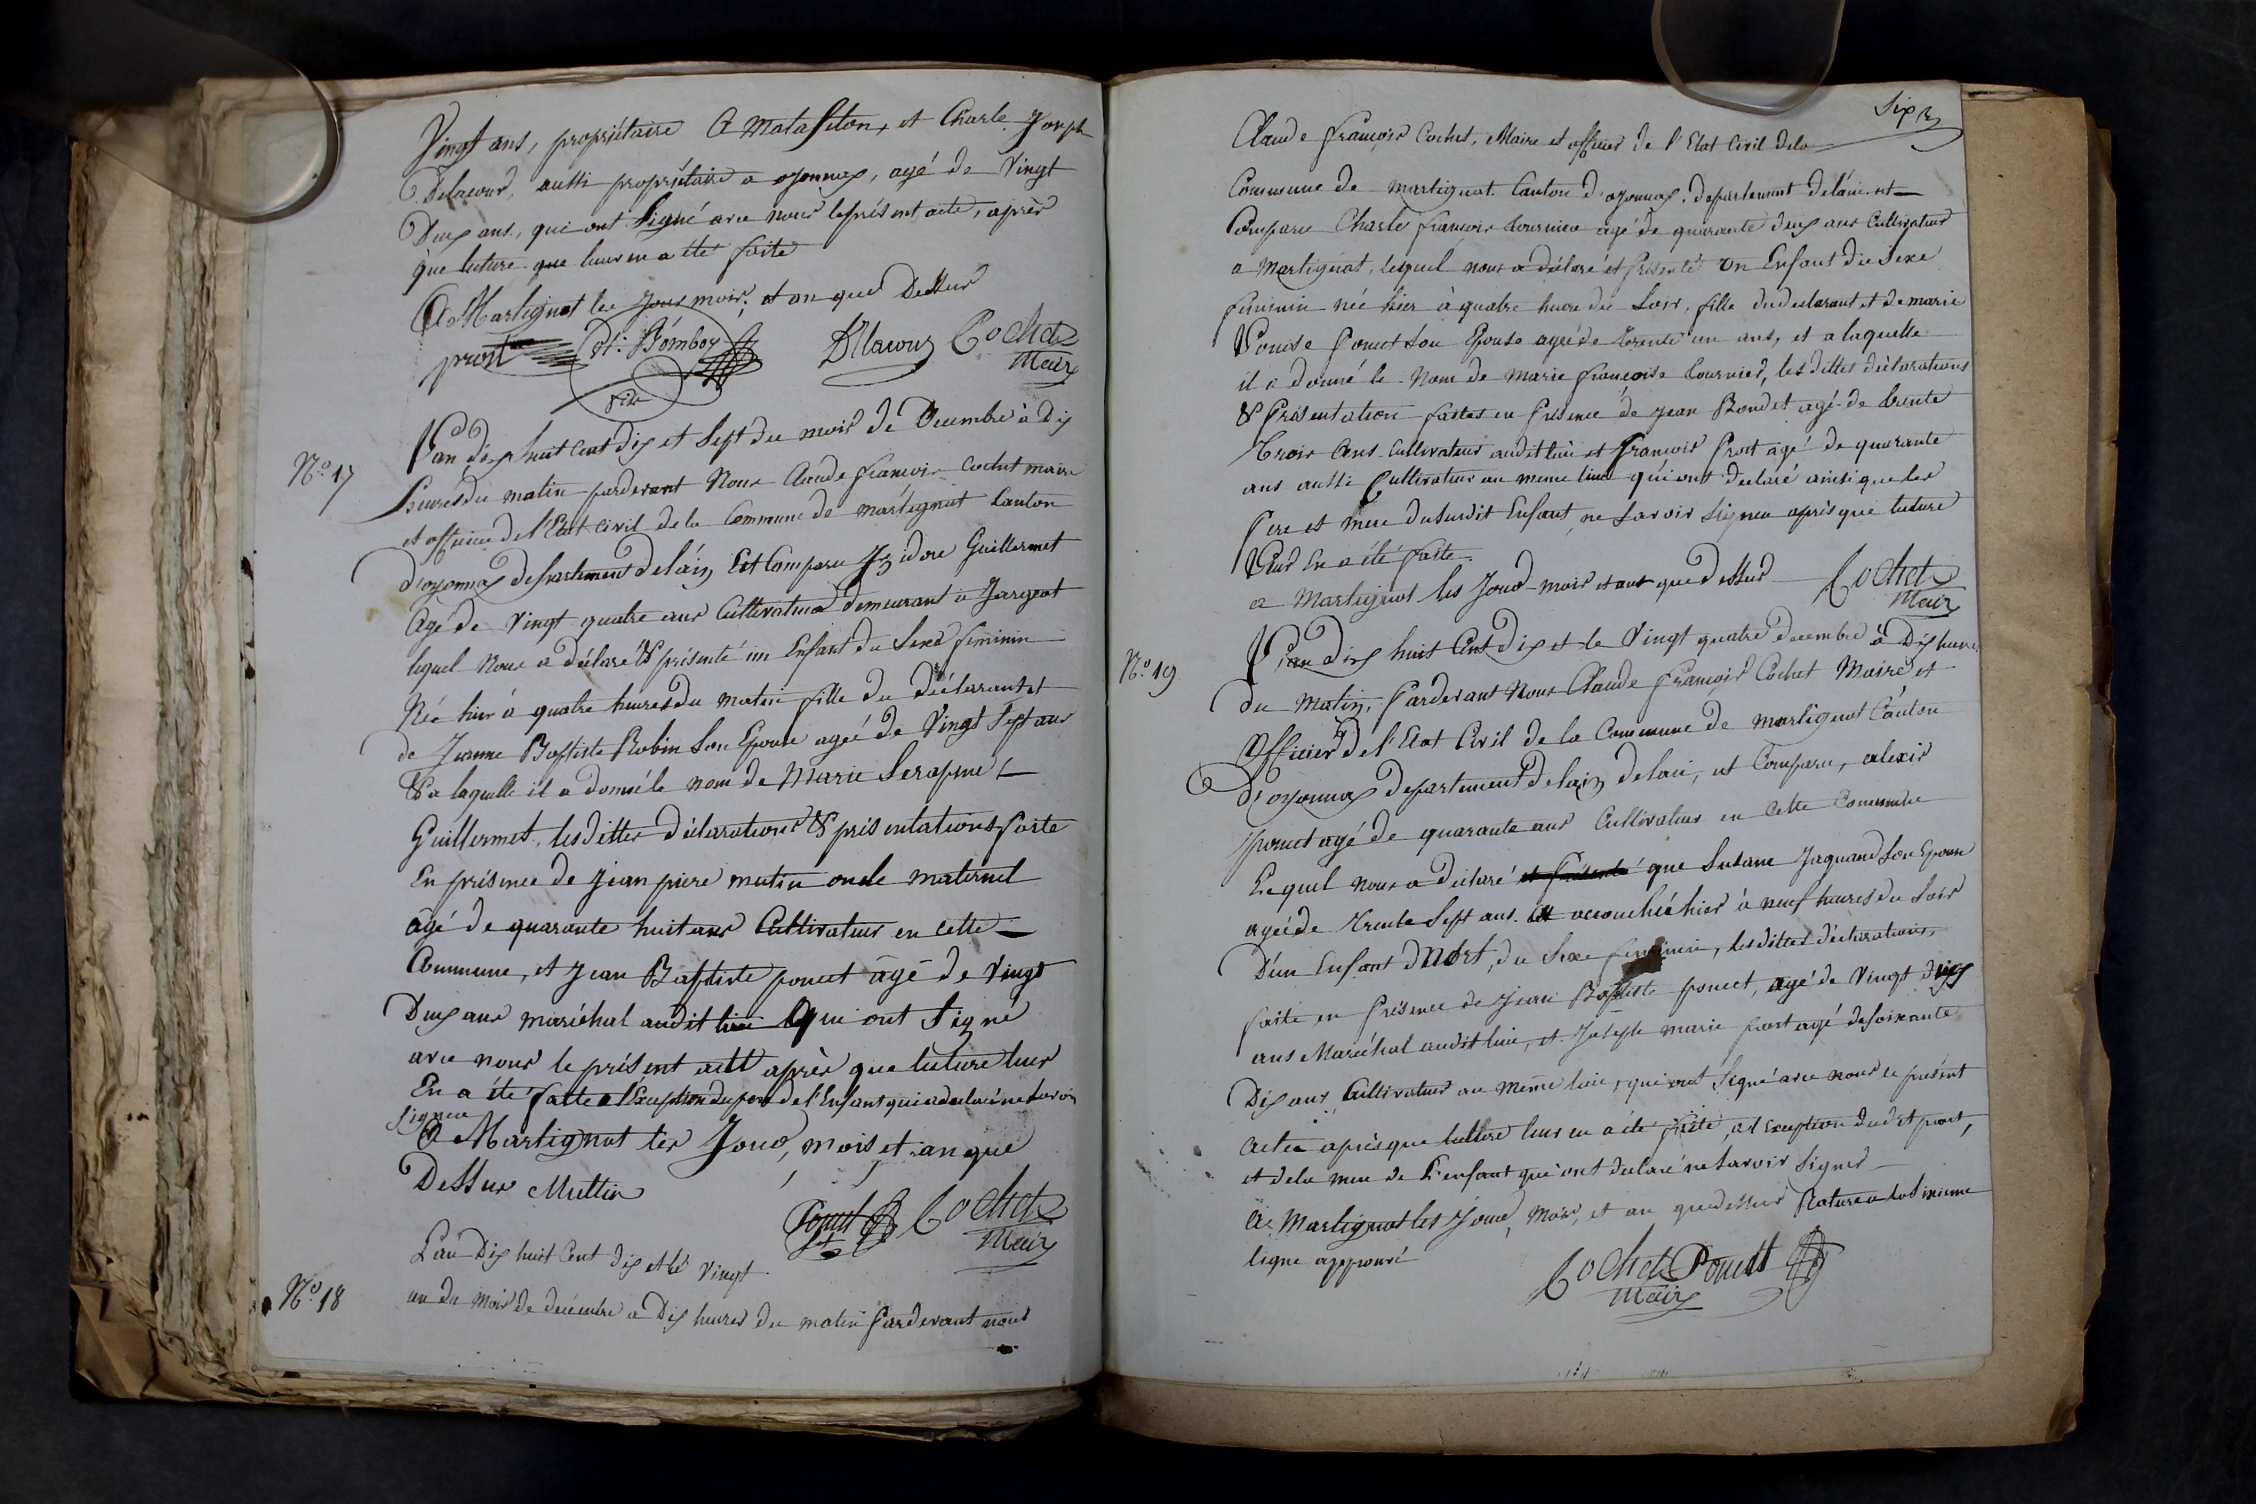 Vingt ans, propriétaire a Matafelon, et Charle Joseph
Delacour, aussi propriétaire a oyonnax, agé de Vingt
Deux ans, qui ont Signé avec nous le présent acte, après
que lecture que leur en a été faite
A Martignat les Jour mois, et an que Dessus
prost Bomboy Delacour Cochet
Maire
N.° 17
L'an dix huit Cent dix et Sept du mois de Decembre à Dix
heures du matin pardevant Nous Claude François Cochet maire
et officier de l'Etat Civil de la Commune de Martignat Canton
d'oyonnax departement de l'ain, Est Comparu Izidore Guillermet
Agé de Vingt quatre ans Cultivateur demeurant a Jargeat
lequel Nous a déclaré & présenté un Enfant du Sexe feminin
Née hier à quatre heures du matin fille du déclarant et
de Jeanne Baptiste Robin Son Epouse agée de Vingt Sept ans
& a laquelle il a donné le nom de Marie Serapine
Guillermet, les dittes déclarations & présentations faite
En présence de Jean piere mutin oncle maternel
âgé de quarante huit ans Cultivateur en cette
Commune, et Jean Baptiste poncet âgé de Vingt
Deux ans maréchal audit lieu Qui ont Signé
avec nous le présent acte après que lecture leur
En a été faitte a l'Exception du pere de l'Enfant qui a declaré ne Savoir
Signer
A Martignat les Jour, mois et an que
Dessus Muttin
Poncet Cochet
Maire
N.° 18
L'an Dix huit Cent dix et le Vingt
un du Mois de decembre a Dix heures du matin Pardevant nous
Six
Claude François Cochet, Maire et officier de l'Etat Civil de la
Commune de Martignat Canton d'oyonnax, departement de l'ain est
Comparu Charle François Tournier agé de quarante deux ans Cultivateur
a Martignat, lequel nous a déclaré et présenté Un Enfant du Sexe
feminin née hier à quatre heure du Soir, fille du declarant et de marie
Poncet Son Epouse agée de trente un ans, et a laquelle
il a donné le Nom de Marie françoise Tournier, les dittes déclarations
& Présentation faites en Présence de Jean Rondet agé de trente
Trois ans Cultivateur audit lieu et François Prost agé de quarante
ans aussi Cultivateur au meme lieu qui ont declaré ainsi que les
Pere et mere du Susdit Enfant, ne Savoir Signer après que lecture
Leur En a été faite.
a Martignat les Jour mois et an que dessus Cochet
Maire
N.° 19
L'an dix huit Cent Dix et le Vingt quatre decembre à Dix heures
du Matin, Pardevant Nous Claude François Cochet Maire et
Officier de l'Etat Civil de la Commune de Martignat Canton
D'oyonnax departement de l'ain de l'ain, est Comparu, alexis
poncet agé de quarante ans Cultivateur en cette Commune
Lequel nous a déclaré et Présenté que Susane Jaquand Son Epouse
agée de Trente Sept ans. Est accouchée hier à neuf heures du Soir
D'un Enfant Mort, du Sexe feminin, les dittes déclarations,
faite en Présence de Jean Baptiste poncet, agé de Vingt deux
ans Maréchal audit lieu, et Joseph marie prost agé de Soixante
Dix ans, Cultivateur au Même lieu, qui ont Signé avec nous le présent
Acte après que lecture leur en a été faite, a l'exception dudit prost,
et de la mere de L'enfant qui ont declaré ne Savoir Signer
A Martignat les Jour, Mois, et an que dessus Rature a la Sixieme
ligne approuvé
Cochet Poncett
Maire